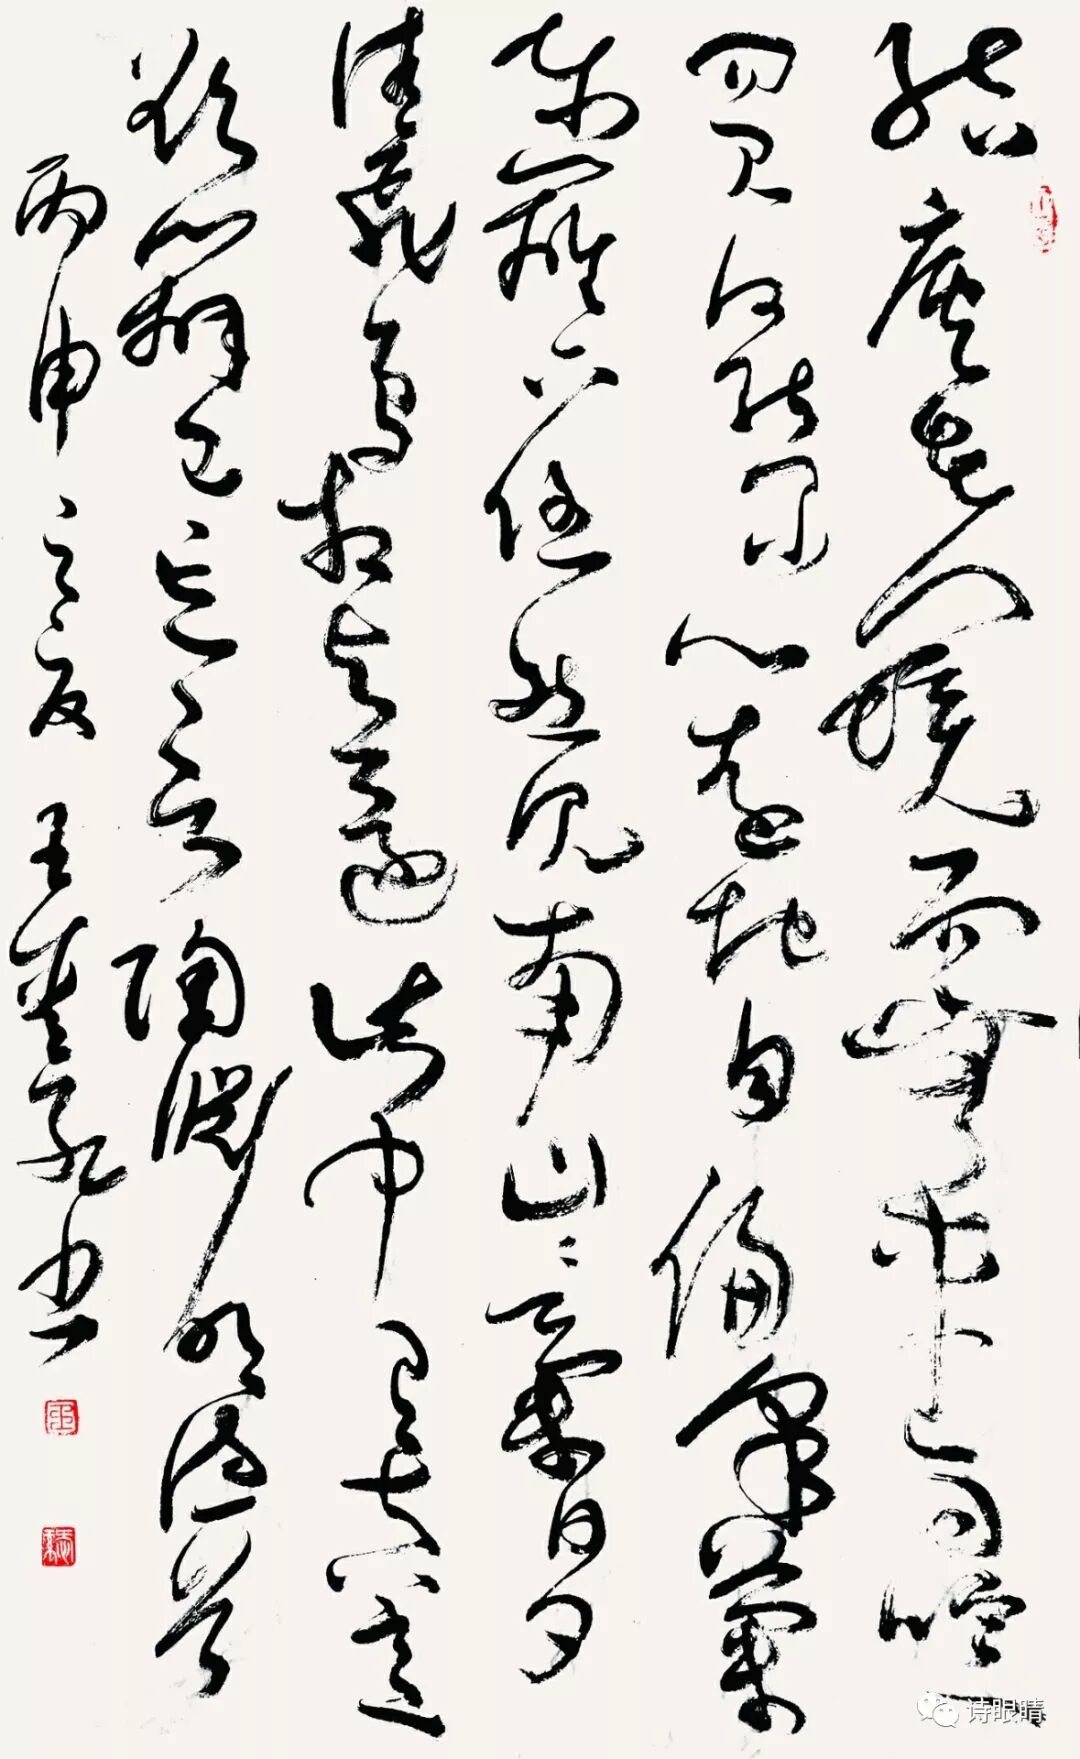 结庐在人境而无车马喧
问君何能尔心远地自偏采菊
东篱下悠然见南山山气日夕
佳飞鸟相与还此中有真意
欲辨已忘言陶渊明饮酒
丙申之夏王
书
诗眼睛